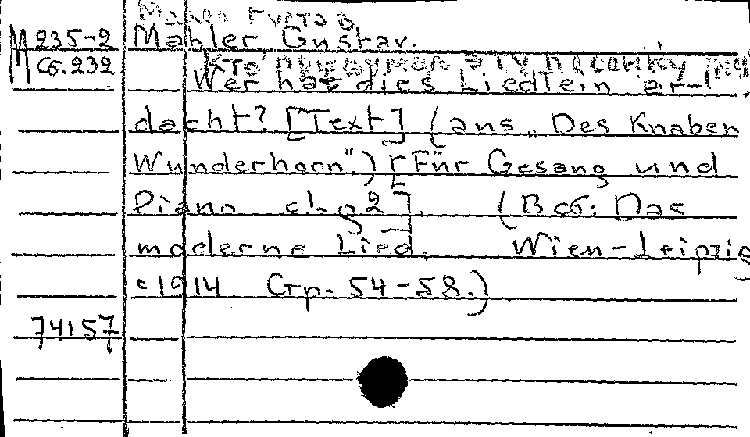 Малер Густав
М 235-2 Mahler, Gustav.
Сб. 232 Кто придумал эту песенку
Wer hat dies Liedlein er-
dacht? [Text] (aus „Des Knaben
Wunderhorn".) [Für Gesang und
Piano
(В сб: Das
moderne Lied. Wien-Leipzig
c1914 Стр. 54-58.)
74157